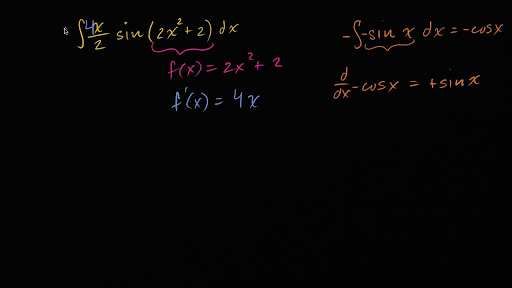 ∫ 4x/2 sin (2x² + 2) dx
f(x) = 2x² + 2
f'(x) = 4x
-∫ -sin x dx = -cos x
d/dx - cos x = + sin x